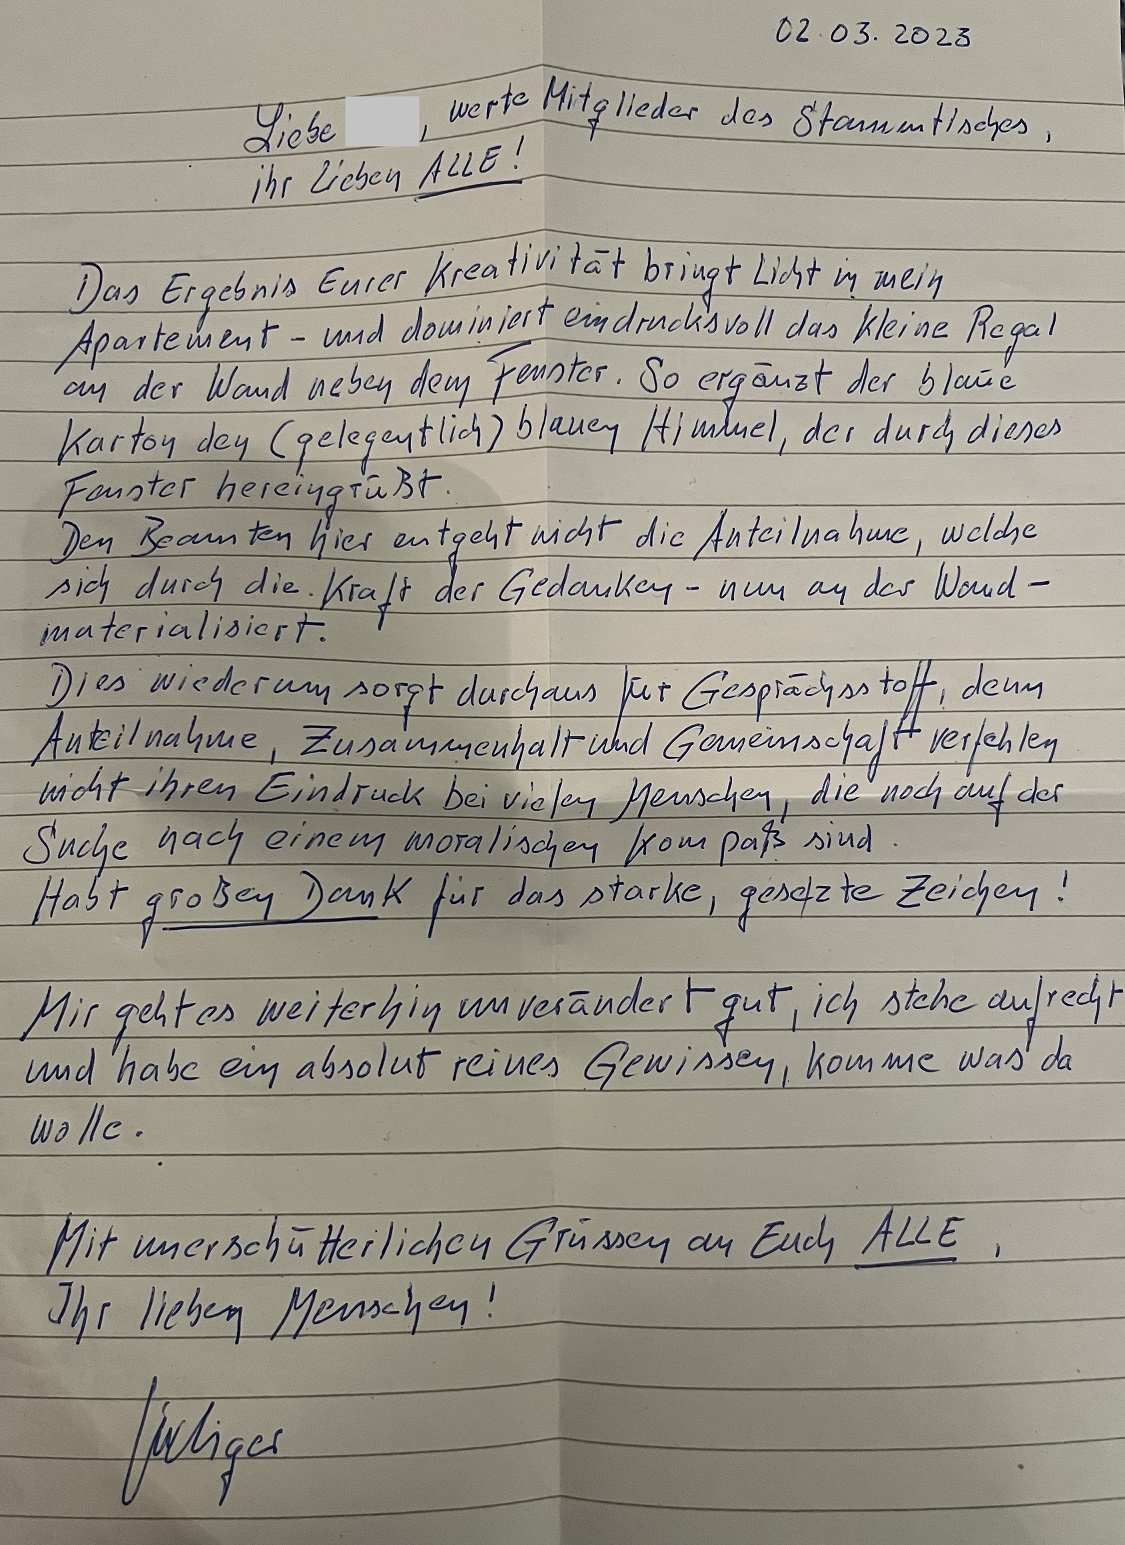 02.03.2023
Liebe , werte Mitglieder des Stammtisches,
ihr lieben ALLE!
Das Ergebnis Eurer Kreativität bringt Licht in mein
Apartement - und dominiert eindrucksvoll das kleine Regal
an der Wand neben dem Fenster. So ergänzt der blaue
Karton den (gelegentlich) blauen Himmel, der durch dieses
Fenster hereingrüßt.
Den Beamten hier entgeht nicht die Anteilnahme, welche
sich durch die Kraft der Gedanken - nun an der Wand -
materialisiert.
Dies wiederum sorgt durchaus für Gesprächsstoff, denn
Anteilnahme, Zusammenhalt und Gemeinschaft verfehlen
nicht ihren Eindruck bei vielen Menschen, die noch auf der
Suche nach einem moralischen Kompaß sind.
Habt großen Dank für das starke, gesetzte Zeichen!
Mir geht es weiterhin unverändert gut, ich stehe aufrecht
und habe ein absolut reines Gewissen, komme was da
wolle.
Mit unerschütterlichen Grüssen an Euch ALLE,
Ihr lieben Menschen!